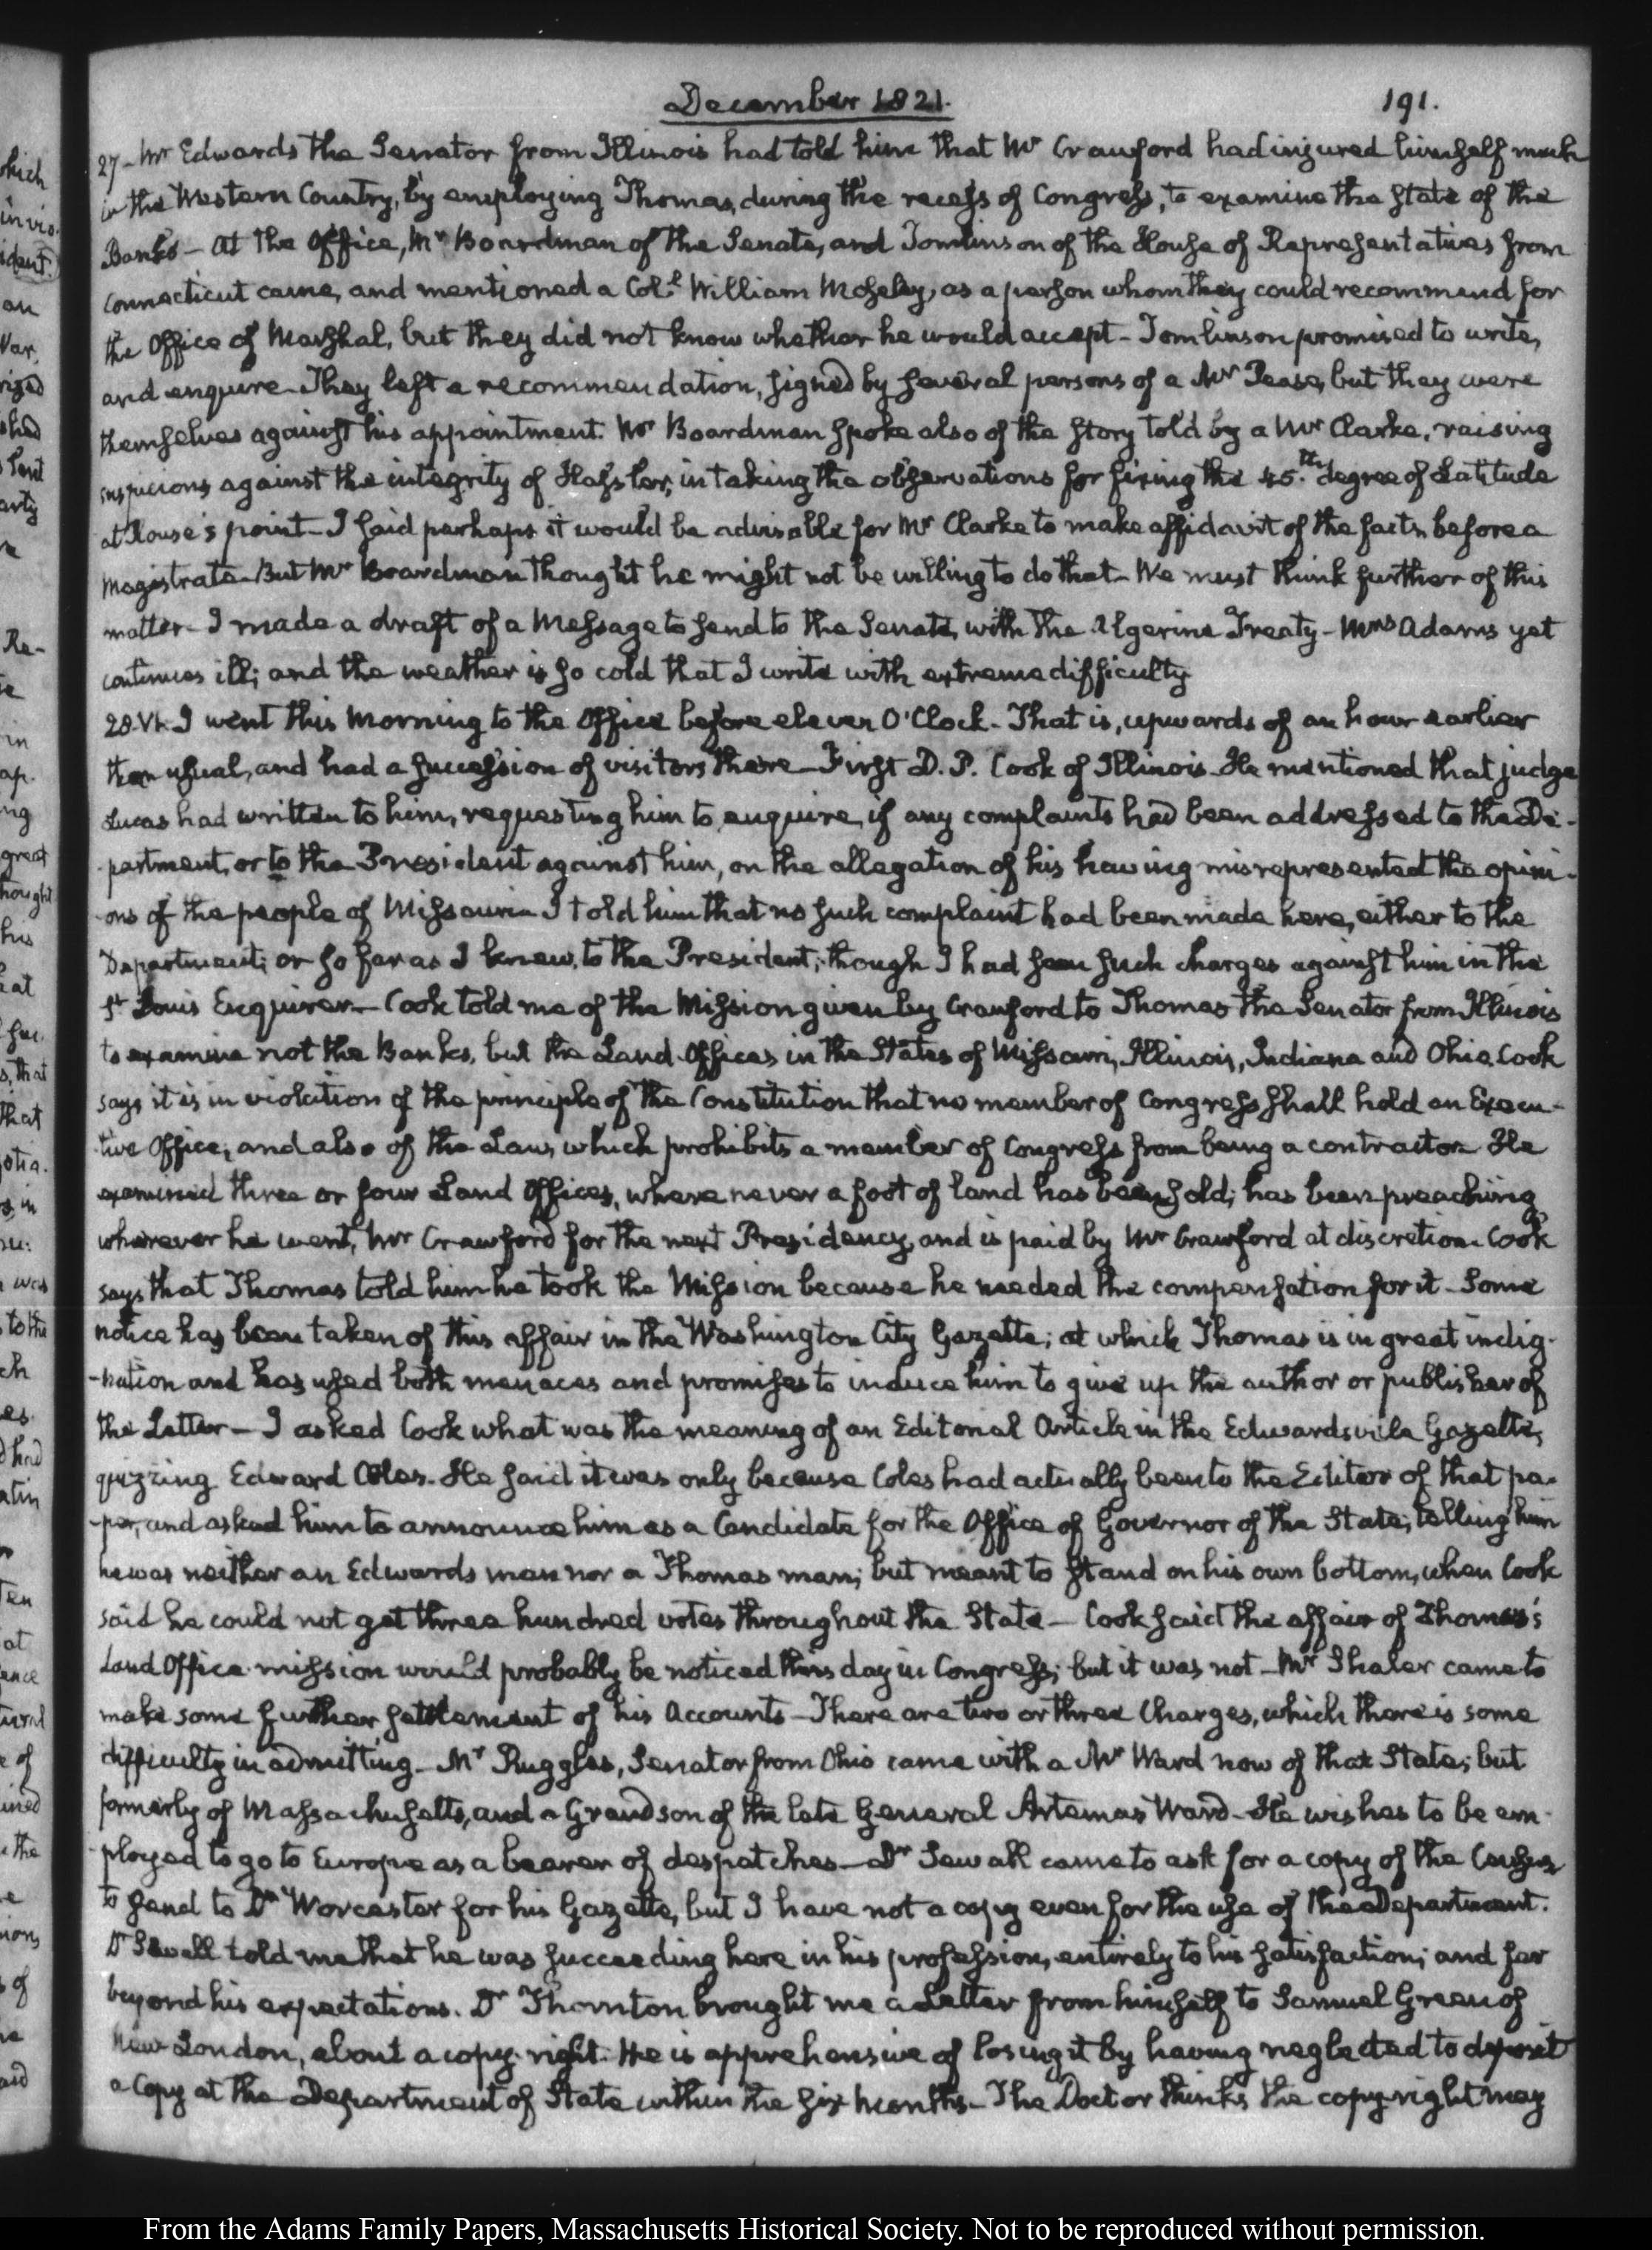 December 1821.
191.
27 – Mr Edwards the Senator from Illinois had told him that Mr Crawford had injured himself much
in the Western Country, by employing Thomas, during the recess of Congress, to examine the State of the
Banks – At the Office, Mr Boardman of the Senate, and Tomlinson of the House of Representatives from
Connecticut came, and mentioned a Coll William Moseley, as a person whom they could recommend for
the Office of Marshal, but they did not know whether he would accept – Tomlinson promised to write,
and enquire – They left a recommendation, signed by several persons of a Mr Pease, but they were
themselves against his appointment. Mr Boardman spoke also of the story told by a Mr Clarke, raising
suspicions against the integrity of Hassler, in taking the observations for fixing the 45.th degree of Latitude
at Rouse's point – I said perhaps it would be advisable for Mr Clarke to make affidavit of the facts before a
Magistrate – But Mr Boardman thought he might not be willing to do that – We must think further of this
matter – I made a draft of a Message to send to the Senate, with the Algerine Treaty – Mrs Adams yet
continues ill; and the weather is so cold that I write with extreme difficulty
28. VI. I went this Morning to the Office before eleven O'Clock – That is, upwards of an hour earlier
than usual, and had a succession of visitors there – First D. P. Cook of Illinois – He mentioned that judge
Lucas had written to him, requesting him to enquire, if any complaints had been addressed to the De-
-partment, or to the President against him, on the allegation of his having misrepresented the opini-
-ons of the people of Missouri – I told him that no such complaint had been made here, either to the
Department; or so far as I knew, to the President; though I had seen such charges against him in the
St Louis Enquirer – Cook told me of the Mission given by Crawford to Thomas the Senator from Illinois
to examine not the Banks, but the Land-Offices in the States of Missouri, Illinois, Indiana and Ohio. Cook
says it is in violation of the principle of the Constitution that no member of Congress shall hold an Execu-
-tive Office; and also of the Law, which prohibits a member of Congress from being a contractor – He
examined three or four Land Offices, where never a foot of land has been sold; has been preaching
wherever he went, Mr Crawford for the next Presidency, and is paid by Mr Crawford at discretion – Cook
says that Thomas told him he took the Mission because he needed the compensation for it – Some
notice has been taken of this affair in the Washington City Gazette; at which Thomas is in great indig-
-nation and has used both menaces and promises to induce him to give up the author or publisher of
the Letter – I asked Cook what was the meaning of an Editorial Article in the Edwardsville Gazette,
quizzing Edward Coles – He said it was only because Coles had actually been to the Editor of that pa-
-per, and asked him to announce him as a Candidate for the Office of Governor of the State; telling him
he was neither an Edwards man nor a Thomas man; but meant to stand on his own bottom, when Cook
said he could not get three hundred votes throughout the State – Cook said the affair of Thomas's
Land Office mission would probably be noticed this day in Congress; but it was not – Mr Shaler came to
make some further settlement of his Accounts – There are two or three Charges, which there is some
difficulty in admitting – Mr Ruggles, Senator from Ohio came with a Mr Ward now of that State; but
formerly of Massachusetts, and a Grandson of the late General Artemas Ward – He wishes to be em-
-ployed to go to Europe as a bearer of despatches – Dr Sewall came to ask for a copy of the Census
to send to Dr Worcester for his Gazette, but I have not a copy even for the use of the Department.
Dr Sewall told me that he was succeeding here in his profession, entirely to his satisfaction; and far
beyond his expectations. Dr Thornton brought me a Letter from himself to Samuel Green of
New-London, about a copy-right. He is apprehensive of losing it by having neglected to deposit
a Copy at the Department of State within the six months – The Doctor thinks the copy-right may
From the Adams Family Papers, Massachusetts Historical Society. Not to be reproduced without permission.